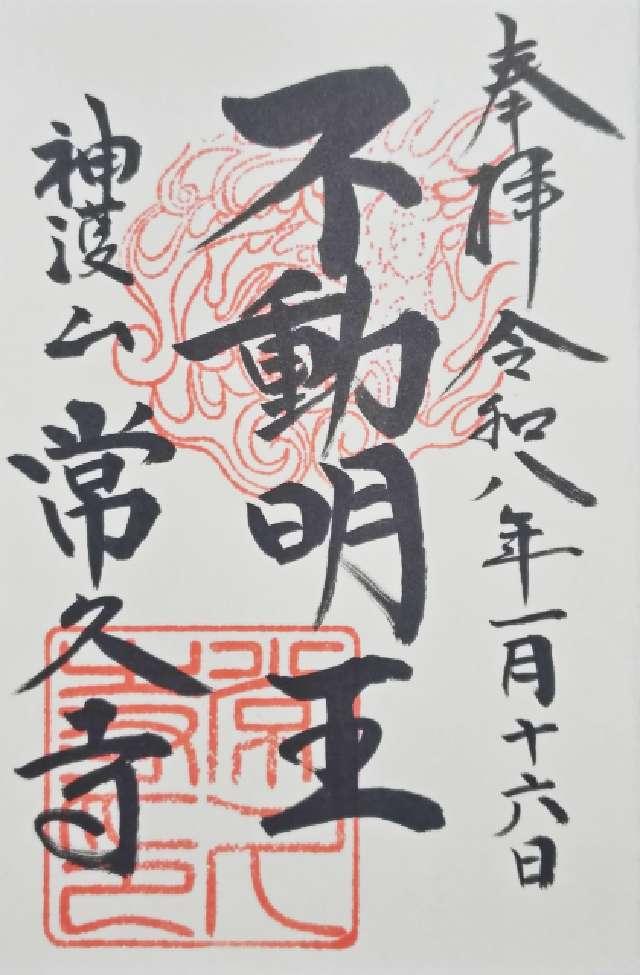 奉拝 令和八年一月十六日
不動明王
神護山 常久寺